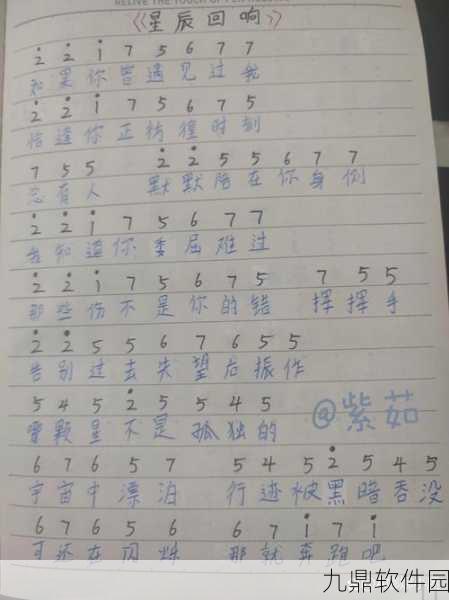 RELIVE THE TOUCH OF PEN
《星辰回响》
2̇ 2̇ 1̇ 7 5 6 7 7
如果你曾遇见过我
2̇ 2̇ 1̇ 7 5 6 7 5
恰逢你正彷徨时刻
7 5 5 2̇ 2̇ 5 5 6 7 7
总有人 默默陪在你身侧
2̇ 2̇ 1̇ 7 5 6 7 7
我知道你委屈难过
2̇ 2̇ 1̇ 7 5 6 7 5 7 5 5
那些伤不是你的错 挥挥手
2̇ 2̇ 5 5 6 7 6 5 5
告别过去失望后振作
5 4 5 2̇ 5 5 4 5
颗星不是孤独的
@紫茹
6 7 6 5 7 5 4 5 2̇ 5 4 5
宇宙中漂泊 行迹被黑暗吞没
6 7 6 5 6 6 7 1̇ 7 1̇
可还在闪烁 那就奔跑吧
九鼎软件园